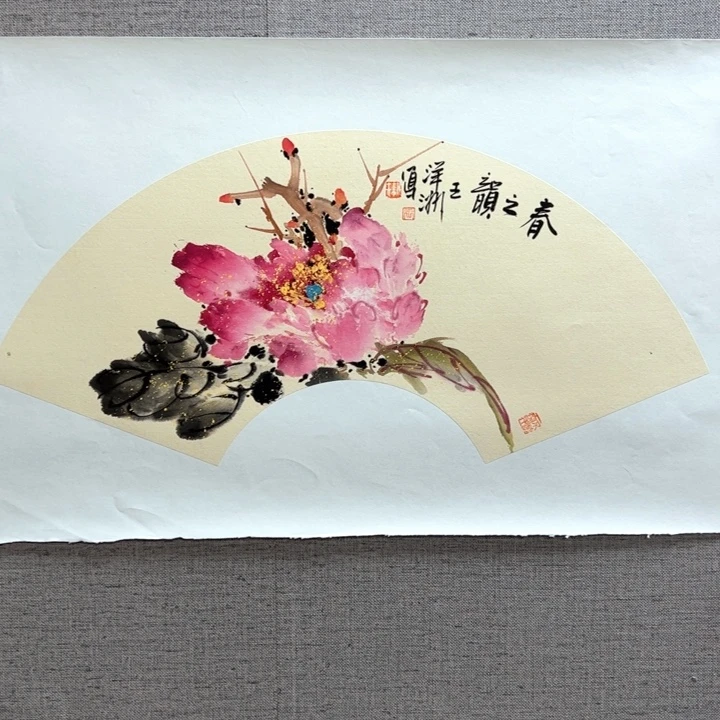 春之韻
王洋洲
写